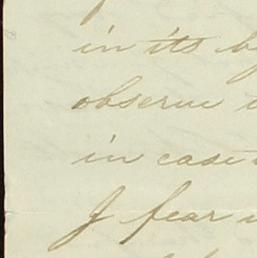 in its
observe
in case
I fear